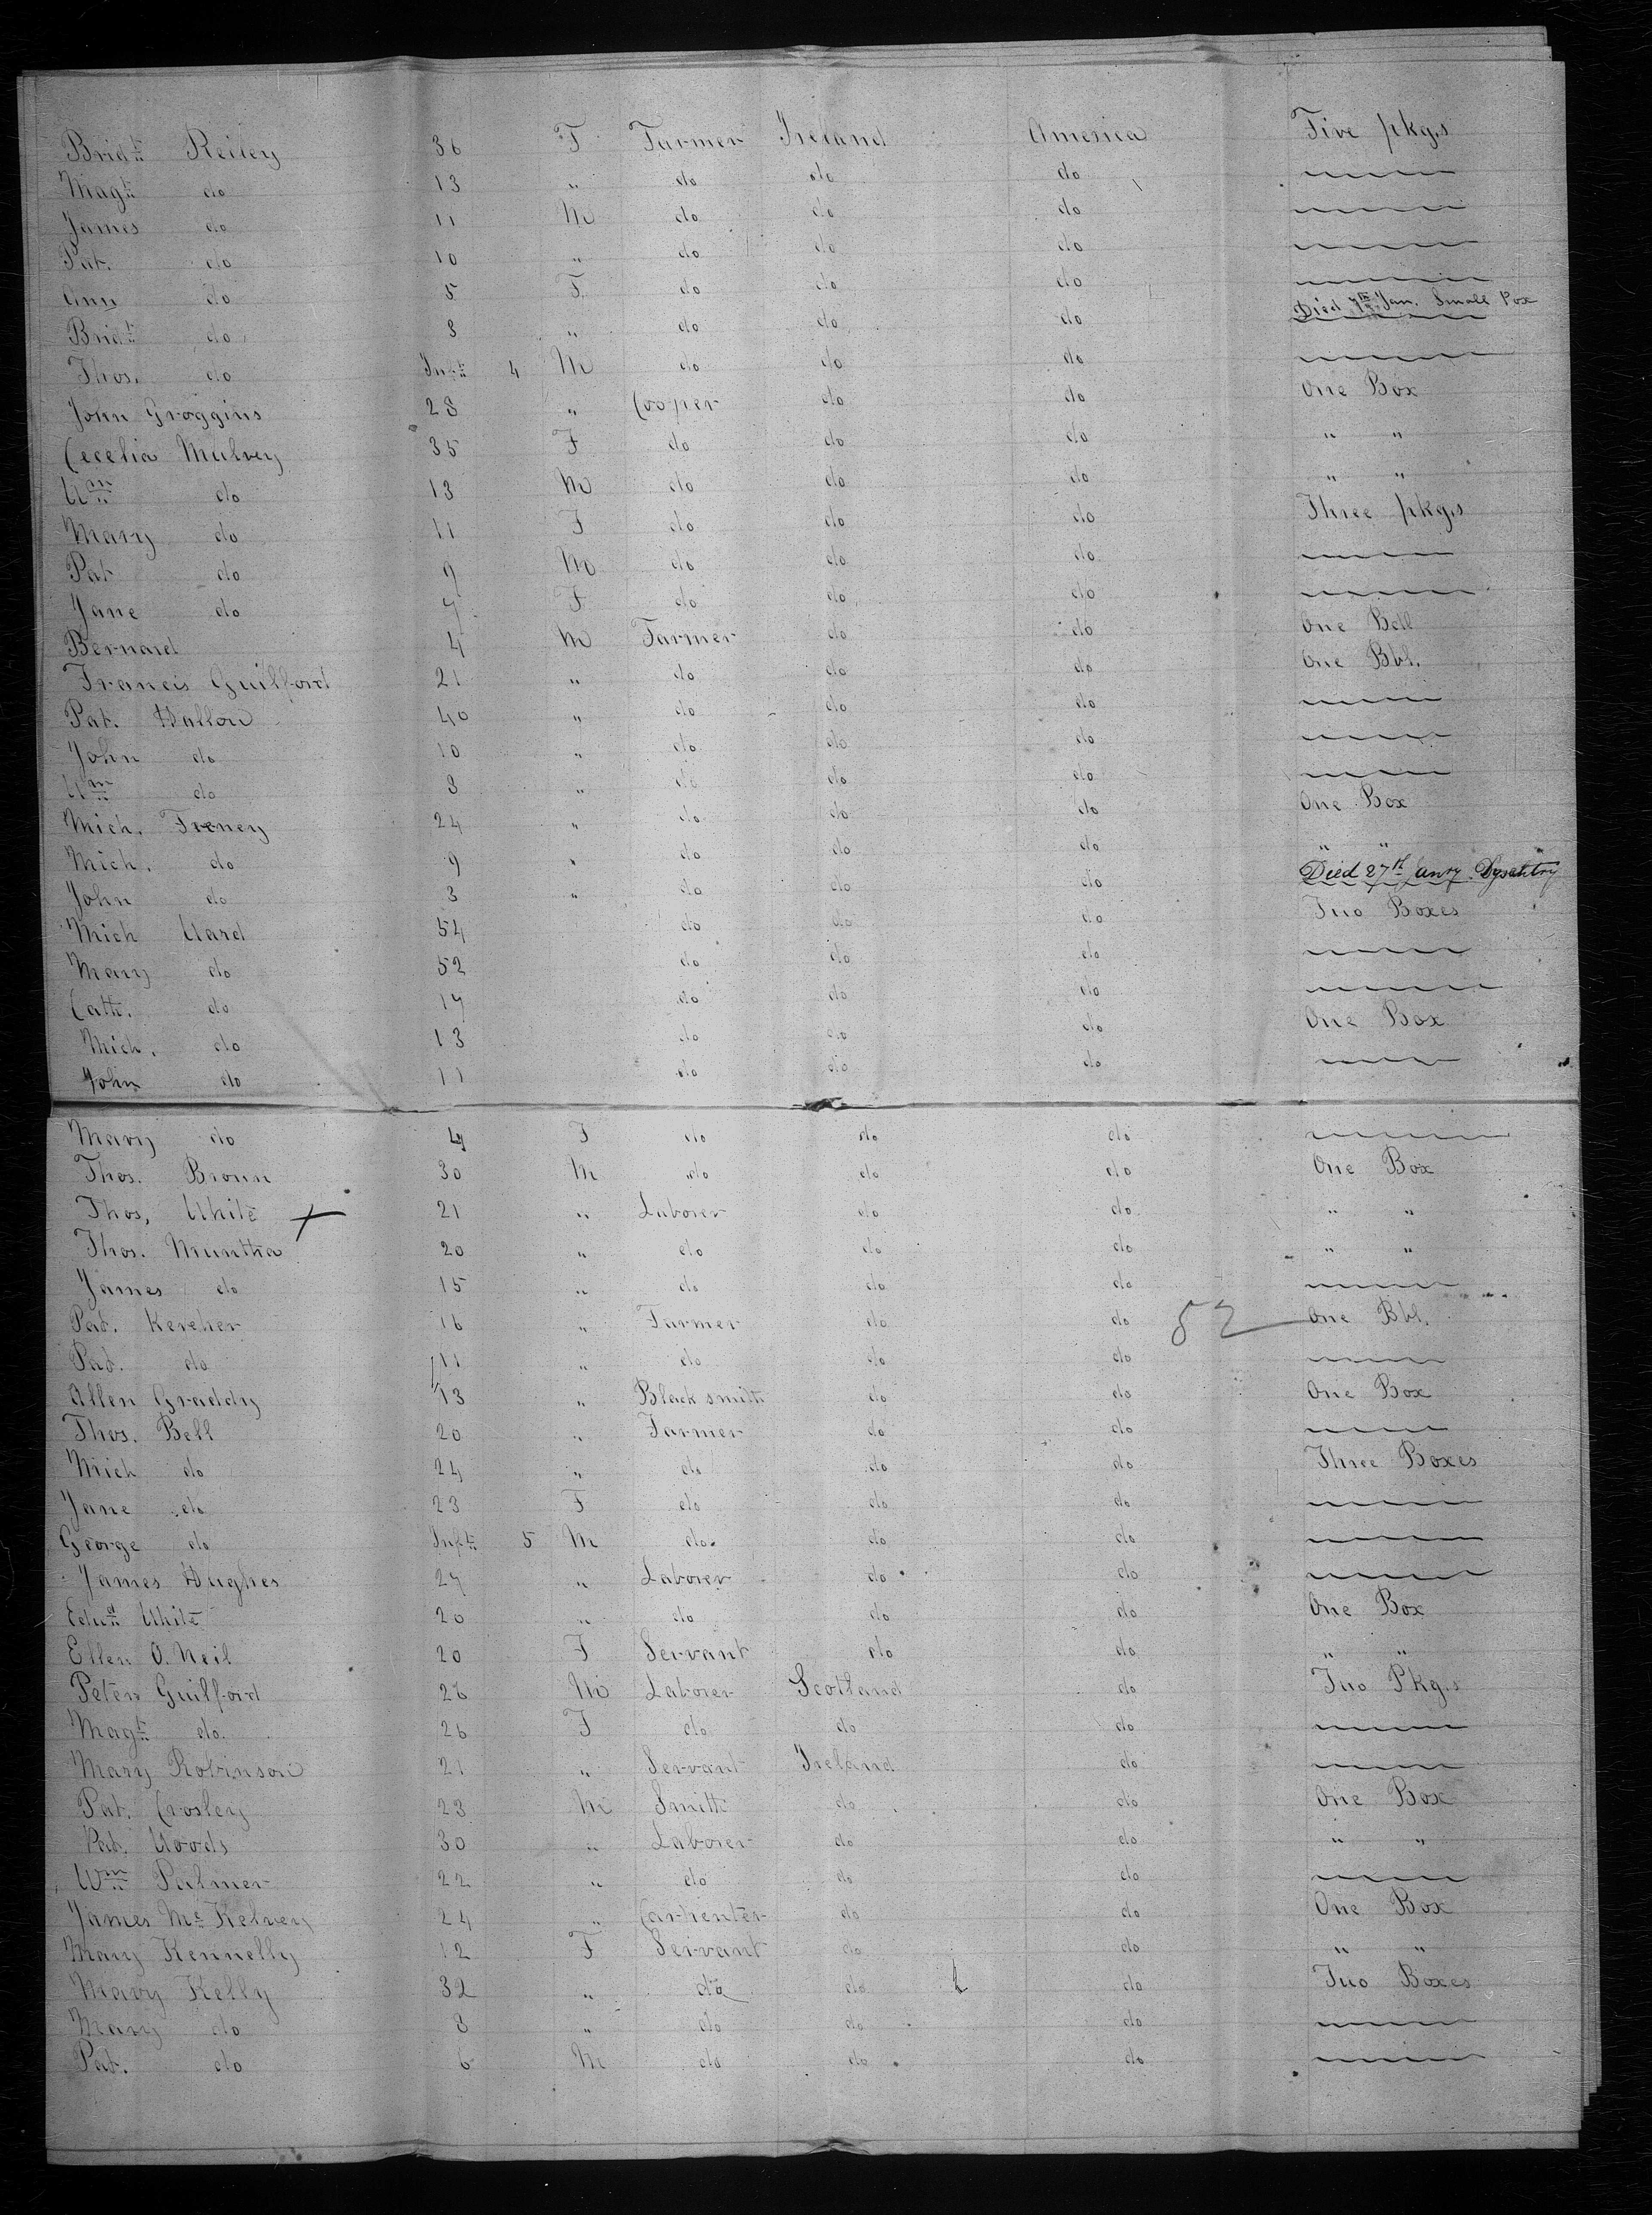 Bridt. Reiley 36 F Farmer Ireland America Five pkgs
Magt. do 13 " do do do
James do 11 M do do do
Pat. do 10 " do do do
Ann do 5 F. do do do
Bridt. do 3 " do do do Died Jan. Small Pox
Thos. do Inft. 4 M do do do
John Groggins 28 " Cooper do do One Box
Cecelia Mulvey 35 F do do do " "
Wm do 13 M do do do " "
Mary do 11 F do do do Three pkgs
Pat do 9 M do do do
Jane do 7 F do do do
Bernard 4 M Farmer do do One Bdl
Francis Guilford 21 " do do do One Bbl.
Pat. Hallon 40 " do do do
John do 10 " do do do
Wm do 8 " do do do
Mich. Freney 24 " do do do One Box
Mich. do 9 " do do do " "
John do 3 " do do do Died 27th Janry. Dysentry
Mich Ward 54 do do do Two Boxes
Mary do 52 do do do
Cath. do 17 do do do
Mich. do 13 do do do One Box
John do 11 do do do
Mary do F do do do
Thos. Brown 30 M do do do One Box
Thos. White + 21 " Laborer do do " "
Thos. Muntha 20 " do do do " "
James do 15 " do do do
Pat. Kercher 16 " Farmer do do 52 One Bbl.
Pat. do 11 " do do do
Allen Graddy 13 " Black smith do do One Box
Thos. Bell 20 " Farmer do do
Mich do 24 " do do do Three Boxes
Jane do 23 F do do do
George do Inft. 5 M do do do
James Hughes 27 " Laborer do do
Edwd White 20 " do do do One Box
Ellen O. Neil 20 F Servant do do " "
Peter Guilford 26 M Laborer Scotland do Two Pkgs
Magt. do. 26 F do do do
Mary Robinson 21 " Servant Ireland do
Pat. Crosley 23 M Smith do do One Box
Pat. Woods 30 " Laborer do do " "
Wm Palmer 22 " do do do
James Mc Kelvey 24 " Carpenter do do One Box
Mary Kennelly 12 F Servant do do " "
Mary Kelly 32 " do do do Two Boxes
Mary do 8 " do do do
Pat. do 6 M do do do